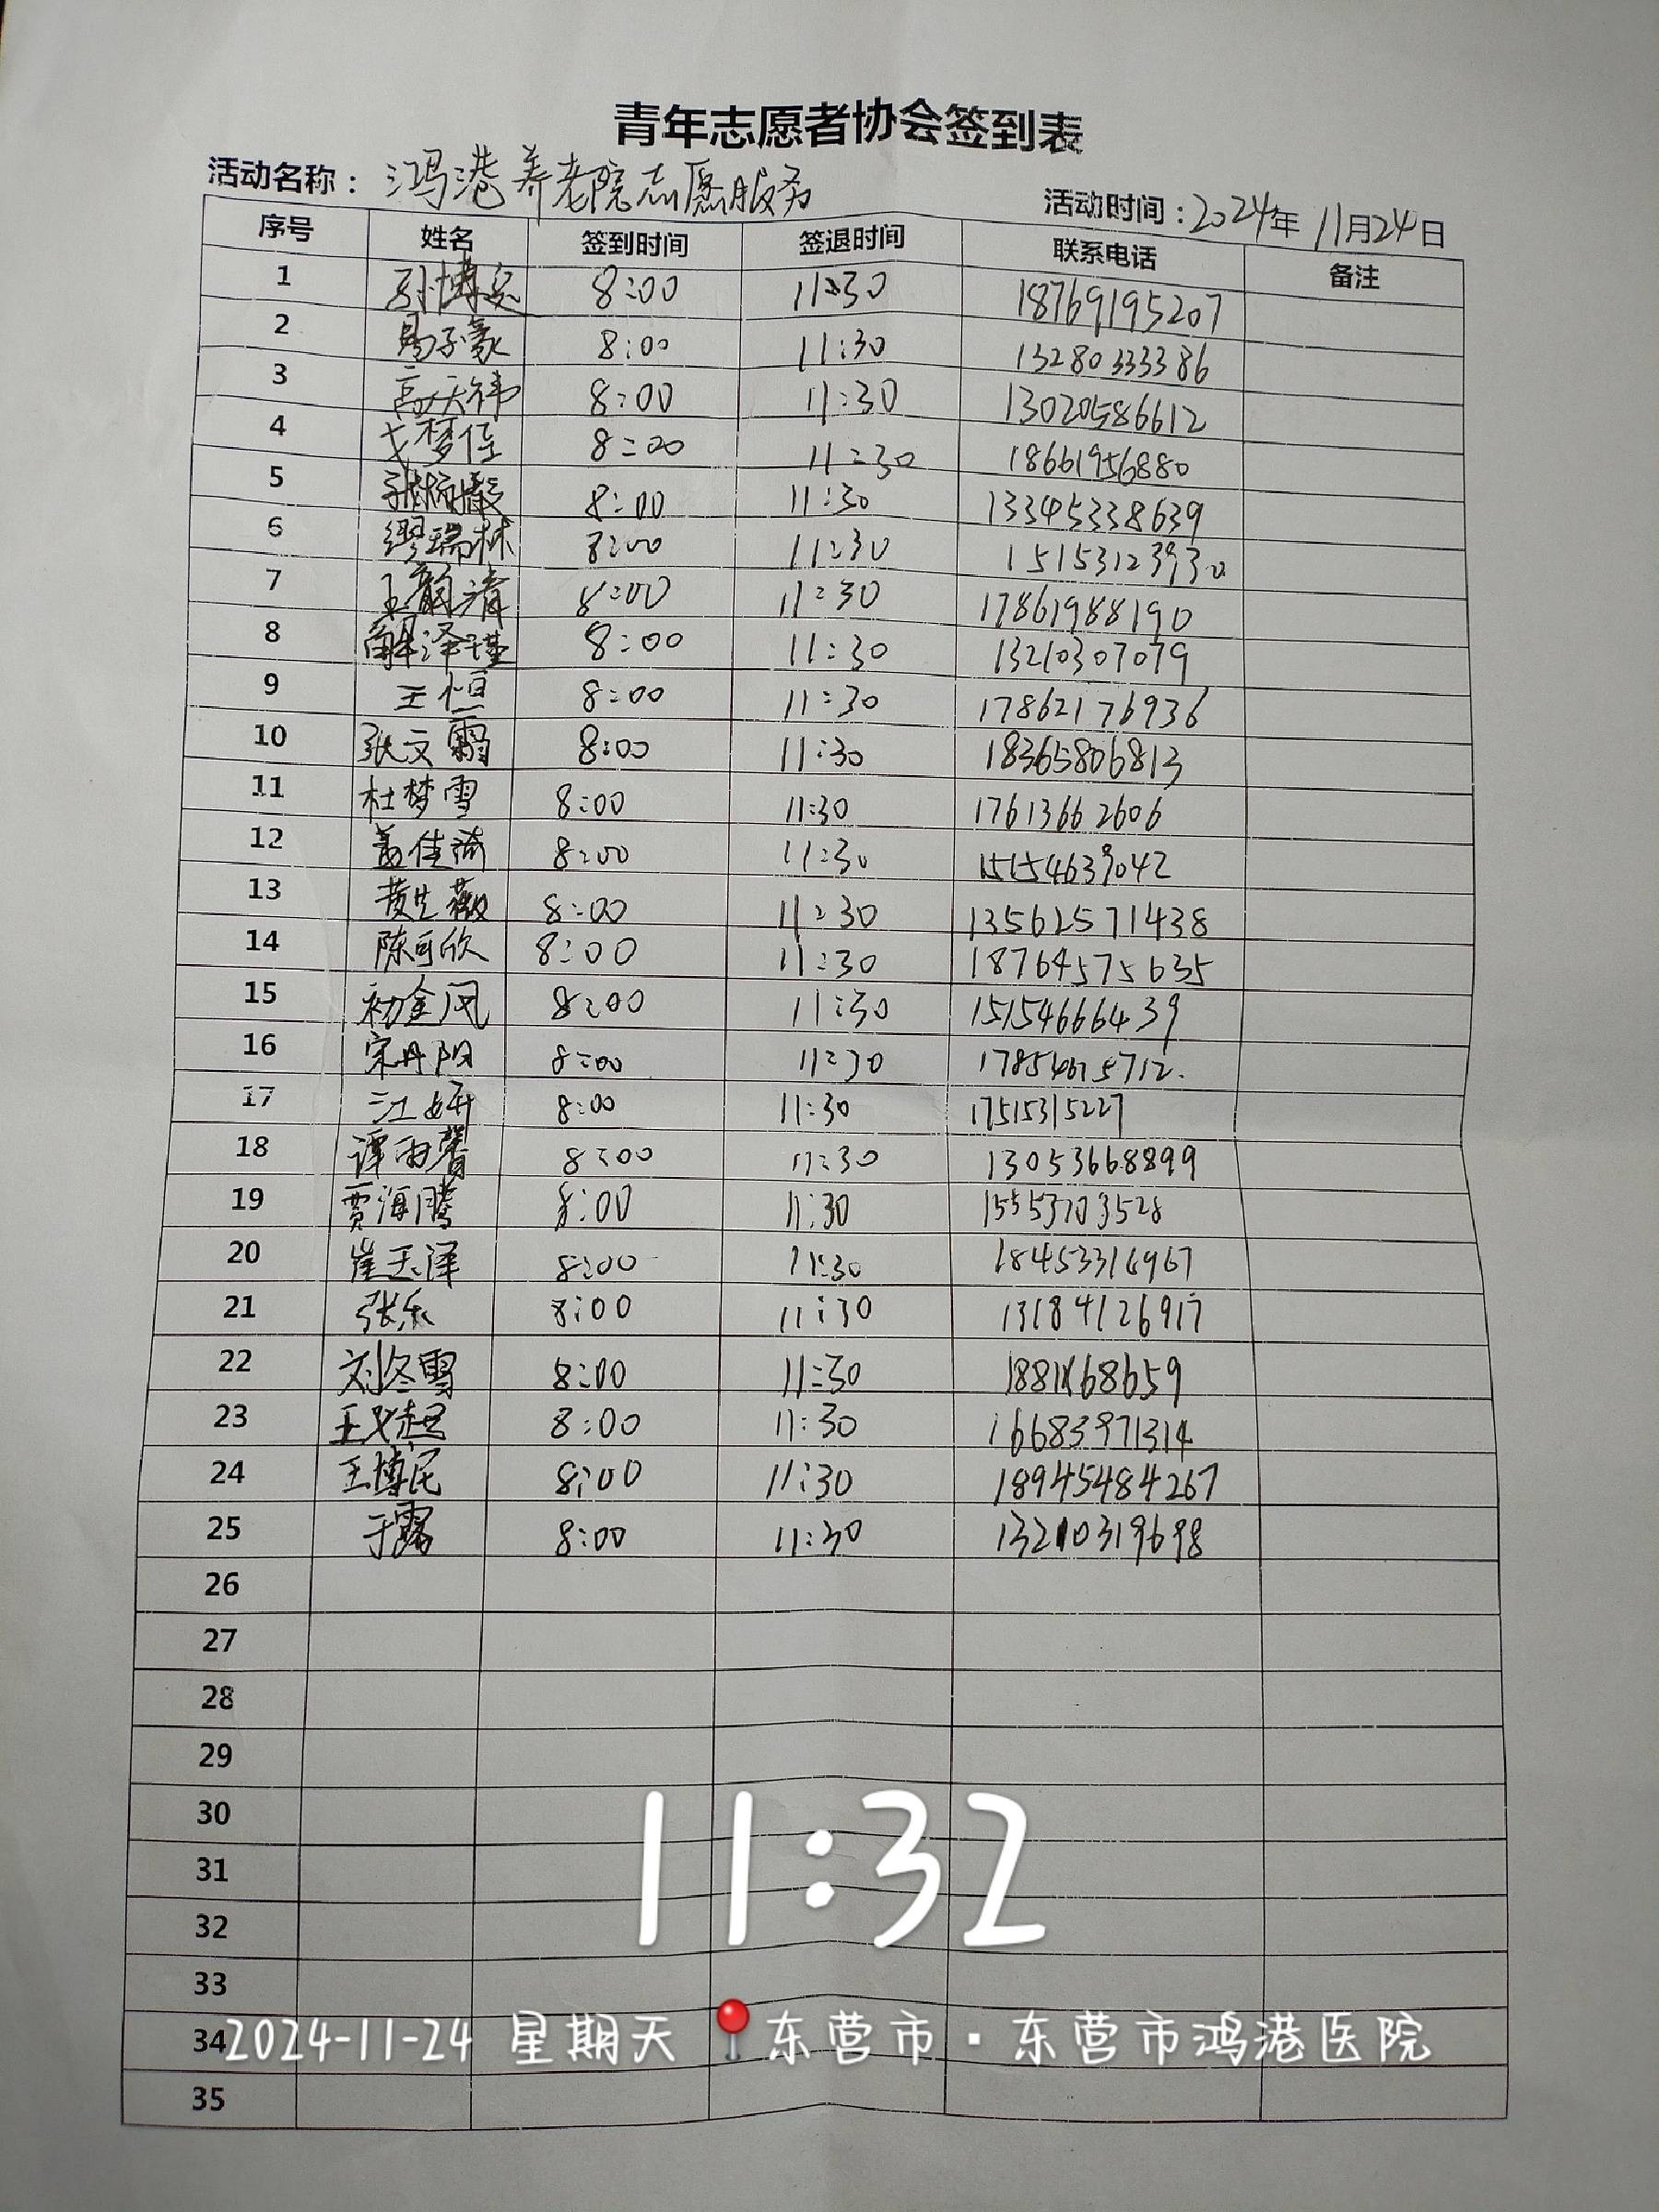 青年志愿者协会签到表
活动名称：鸿港养老院志愿服务 活动时间：2024年11月24日
序号 姓名 签到时间 签退时间 联系电话 备注
1 8:00 11:30 18769195207
2 8:00 11:30 13280333386
3 高天祎 8:00 11:30 13020586612
4 8:00 11:30 18661956880
5 8:00 11:30 13345338639
6 缪瑞林 8:00 11:30 15153123930
7 王韵清 8:00 11:30 17861988190
8 解泽瑾 8:00 11:30 13210307079
9 王恒 8:00 11:30 17862176936
10 张文霸 8:00 11:30 18365806813
11 杜梦雪 8:00 11:30 17613662606
12 8:00 11:30 15154639042
13 8:00 11:30 13562571438
14 陈可欣 8:00 11:30 18764575635
15 初金凤 8:00 11:30 15154666439
16 宋丹阳 8:00 11:30
17 江妍 8:00 11:30 17515315227
18 谭雨馨 8:00 11:30 13053668899
19 贾海腾 8:00 11:30 15553703528
20 崔玉泽 8:00 11:30 18453316967
21 张乐 8:00 11:30 13184126917
22 刘冬雪 8:00 11:30
23 王义起 8:00 11:30 16683971314
24 王博民 8:00 11:30 18945484267
25 于露 8:00 11:30 13210319698
26
27
28
29
30
11:32
31
32
33
34
2024-11-24 星期天 东营市·东营市鸿港医院
35